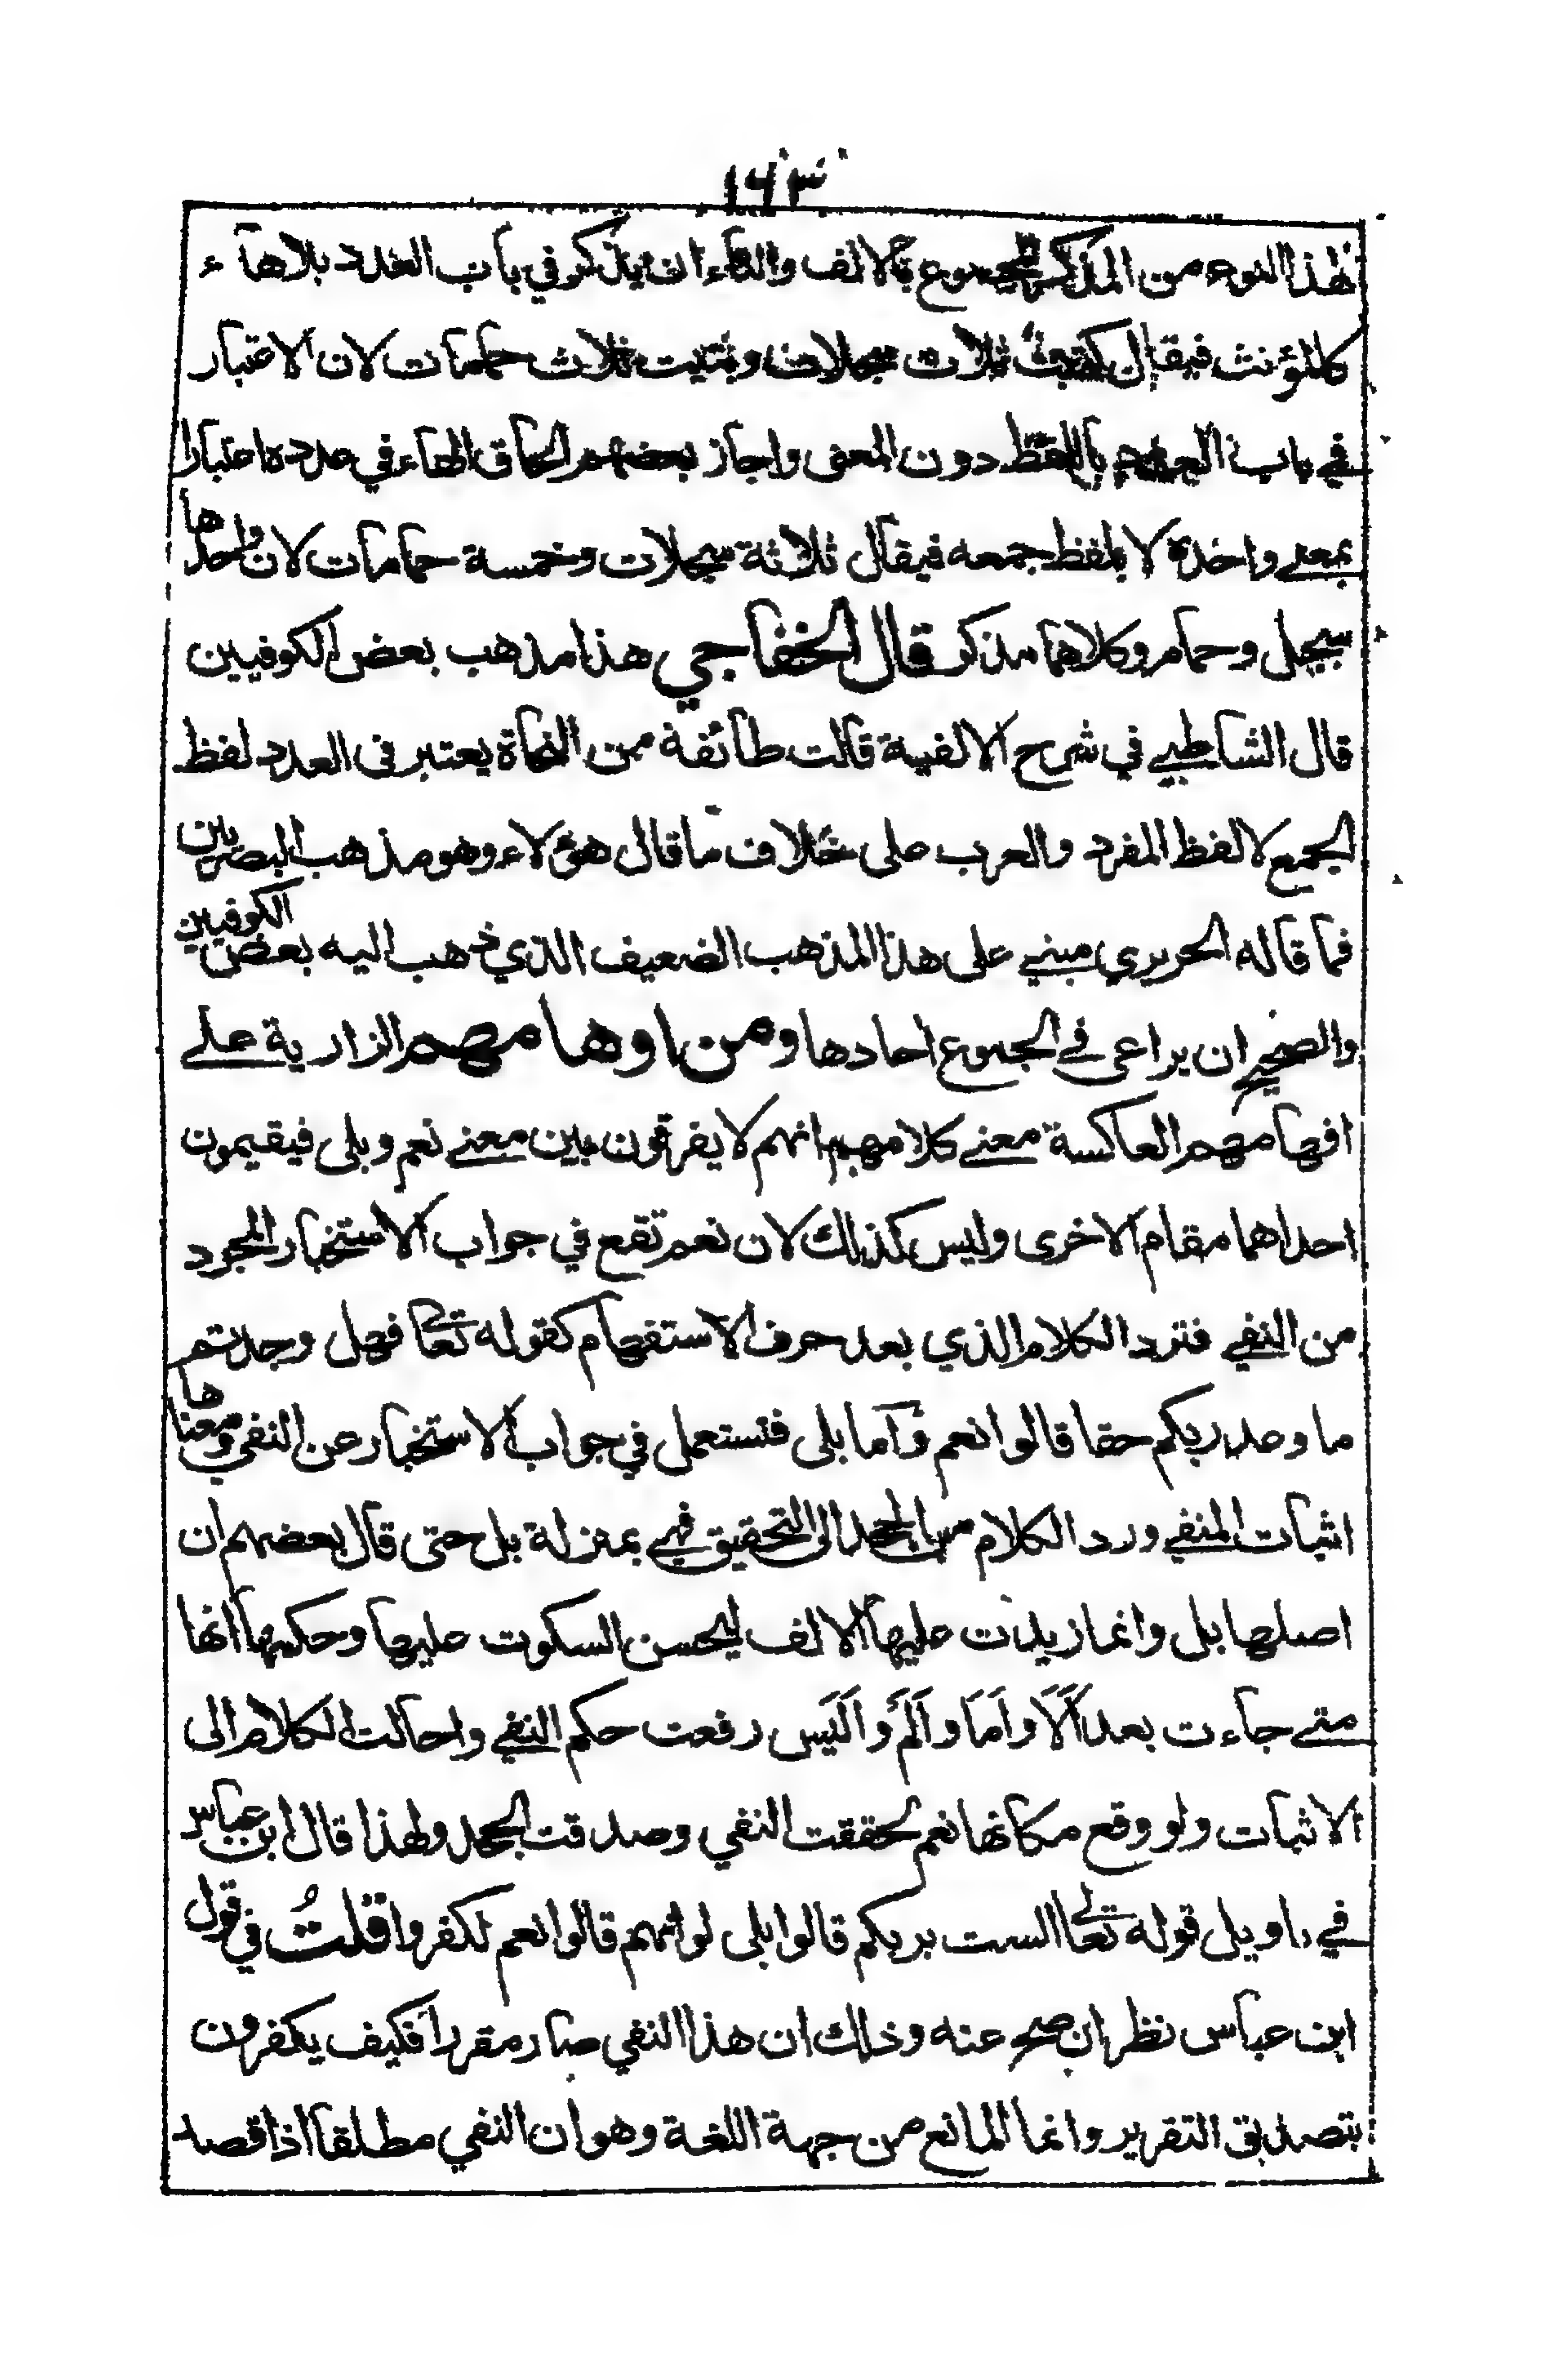 ١٦٣
لهذا النوع من المذكر المجموع بالالف والتاء ان يذكر في باب العدد بلاهاء
كالمؤنث فيقال كتبت ثلاث سجلات وبنيت ثلاث حمامات لان الاعتبار
في باب العدد باللفظ دون المعنى واجاز بعضهم الحاق الهاء في عدده اعتبارا
بمعنے واحده لا بلفظ جمعه فيقال ثلاثة سجلات وخمسة حمامات لان واحدها
سجل وحمام وكلاهما مذكر قال الخفاجي هذا مذهب بعض الكوفيين
قال الشاطبے في شرح الالفية قالت طائفة من النحاة يعتبر في العدد لفظ
الجمع لا لفظ المفرد والعرب على خلاف ما قال هؤلاء وهو مذهب البصريين
فما قاله الحريري مبنے على هذا المذهب الضعيف الذي ذهب اليه بعض الكوفيين
والصحيح ان يراعى في الجموع احادها ومن اوهامهم الزارية علے
افهامهم العاكسة معنے كلامهم انهم لا يفرقون بين معنے نعم وبلى فيقيمون
احداهما مقام الاخرى وليس كذلك لان نعم تقع في جواب الاستخبار المجرد
من النفے فترد الكلام الذي بعد حرف الاستفهام كقوله تعالى فهل وجدتم
ما وعد ربكم حقا قالوا نعم وَاَما بلى فتستعمل في جواب الاستخبار عن النفي ومعناها
اثبات المنفے ورد الكلام من الجحد الى التحقيق فهے بمنزلة بل حتى قال بعضهم ان
اصلها بل وانما زيدت عليها الالف ليحسن السكوت عليها وحكمها انها
متے جاءت بعد اَلَا واَمَا واَلَمْ واَلَيْسَ رفعت حكم النفے واحالت الكلام الى
الاثبات ولو وقع مكانها نعم لحققت النفي وصدقت الجحد ولهذا قال ابن عباس
في تاويل قوله تعالى الست بربكم قالوا بلى لو انهم قالوا نعم لكفروا قلتُ في قول
ابن عباس نظر ان صح عنه وذلك ان هذا النفي صار مقررا فكيف يكفرون
بتصديق التقرير وانما المانع من جهة اللغة وهو ان النفي مطلقا اذا قصد